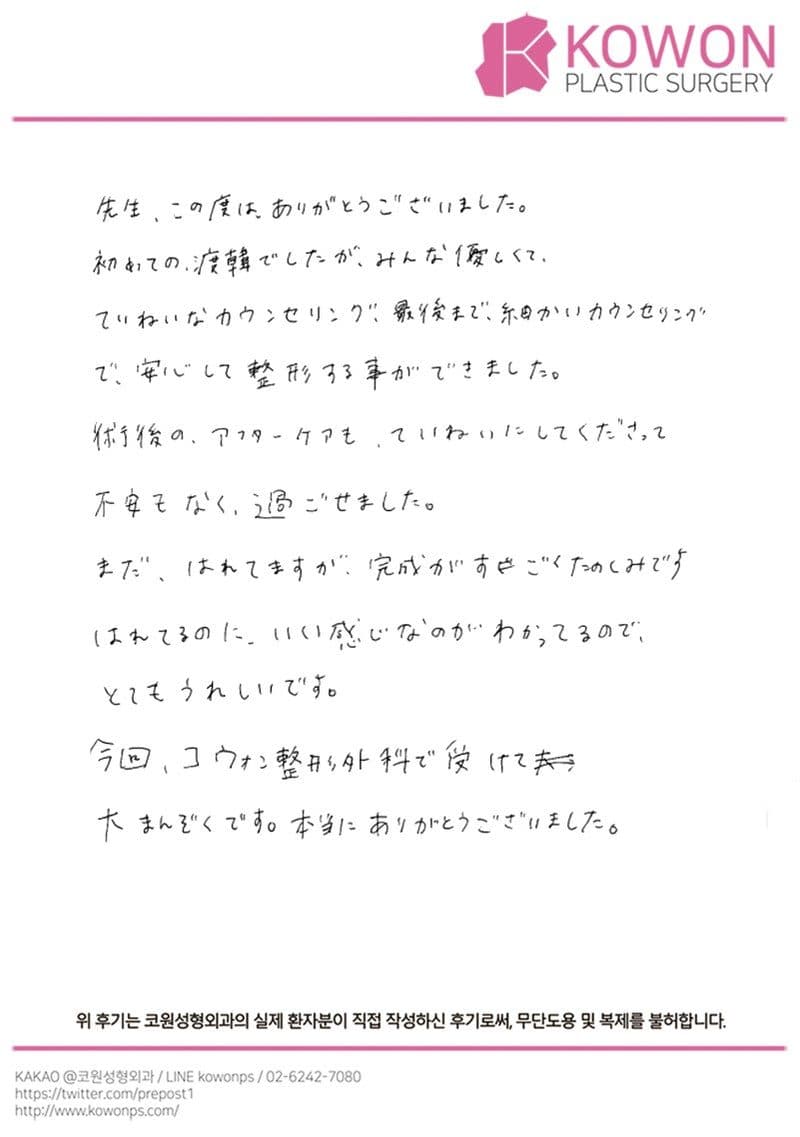 KOWON
PLASTIC SURGERY
先生、この度は、ありがとうございました。
初めての、渡韓でしたが、みんな優しくて、
ていねいなカウンセリング、最後まで、細かいカウンセリング
で、安心して整形する事ができました。
術後の、アフターケアも、ていねいにしてくださって
不安もなく、過ごせました。
まだ、はれてますが、完成がすごくたのしみです
はれてるのに、いい感じなのがわかってるので、
とてもうれしいです。
今回、コウォン整形外科で受けて
大まんぞくです。本当にありがとうございました。
위 후기는 코원성형외과의 실제 환자분이 직접 작성하신 후기로써, 무단도용 및 복제를 불허합니다.
KAKAO @코원성형외과 / LINE kowonps / 02-6242-7080
https://twitter.com/prepost1
http://www.kowonps.com/